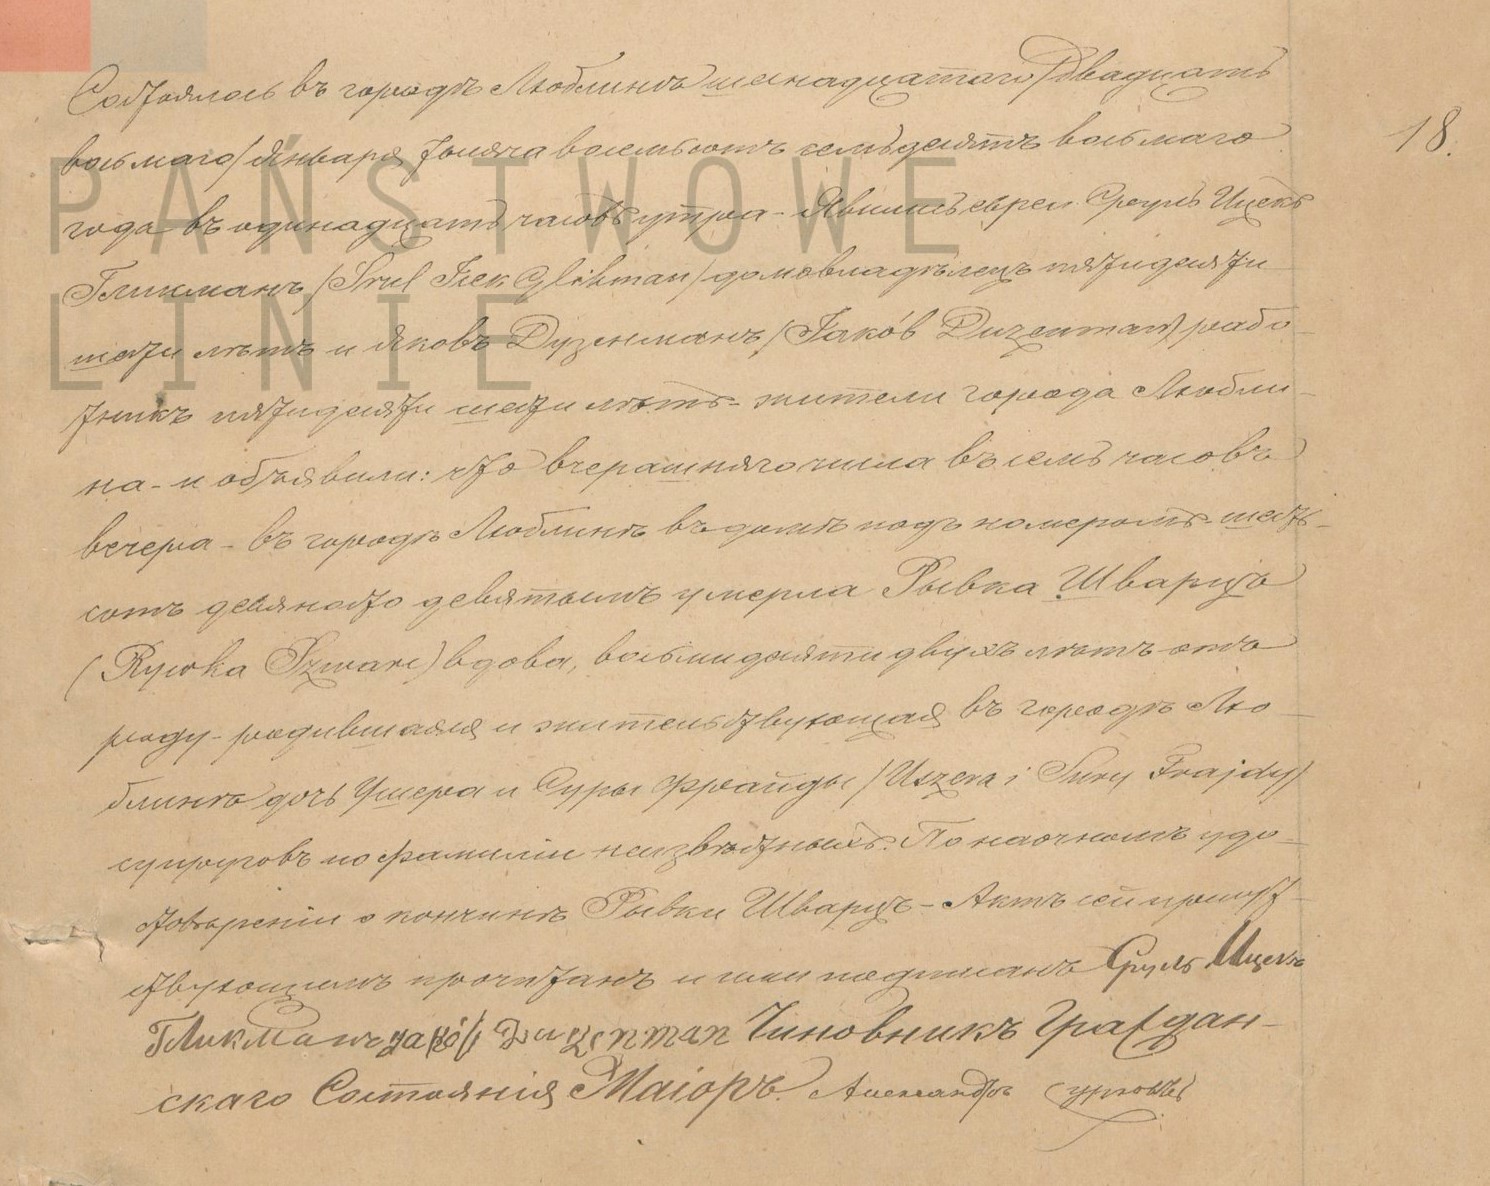 Состоялось въ городѣ Люблинѣ шеснадцатаго/двадцать
восьмаго/ Января тысяча восемьсотъ семьдесятъ восьмаго
18.
года въ одинадцать часовъ утра - Явились евреи Сруль Ицекъ
Гликманъ /Srul Icek Glikman/ домовладѣлецъ пятидесяти
шести лѣтъ и Яковъ Дузенманъ /Jakób Duzenman/ рабо-
тникъ пятидесяти шести лѣтъ - жители города Любли-
на - и объявили: что вчерашняго числа въ семь часовъ
вечера - въ городѣ Люблинѣ въ домѣ подъ номеромъ шесть-
сотъ девяносто девятымъ умерла Рывка Шварцъ
(Rywka Szwarc) вдова, восьмидесяти двухъ лѣтъ отъ
роду - родившаяся и жительствующая въ городѣ Лю-
блинѣ дочь Ушера и Суры Фрайды /Uszera i Sury Frajdy/
супруговъ по фамиліи неизвѣстныхъ. По наочномъ удо-
стовѣреніи о кончинѣ Рывки Шварцъ - Актъ сей присут-
ствующимъ прочитанъ и ими подписанъ Сруль Ицекъ
Гликманъ Jakób Duzenman Чиновникъ Граждан-
скаго Состоянія Маіоръ. Александръ
PAŃSTWOWE
LINIE